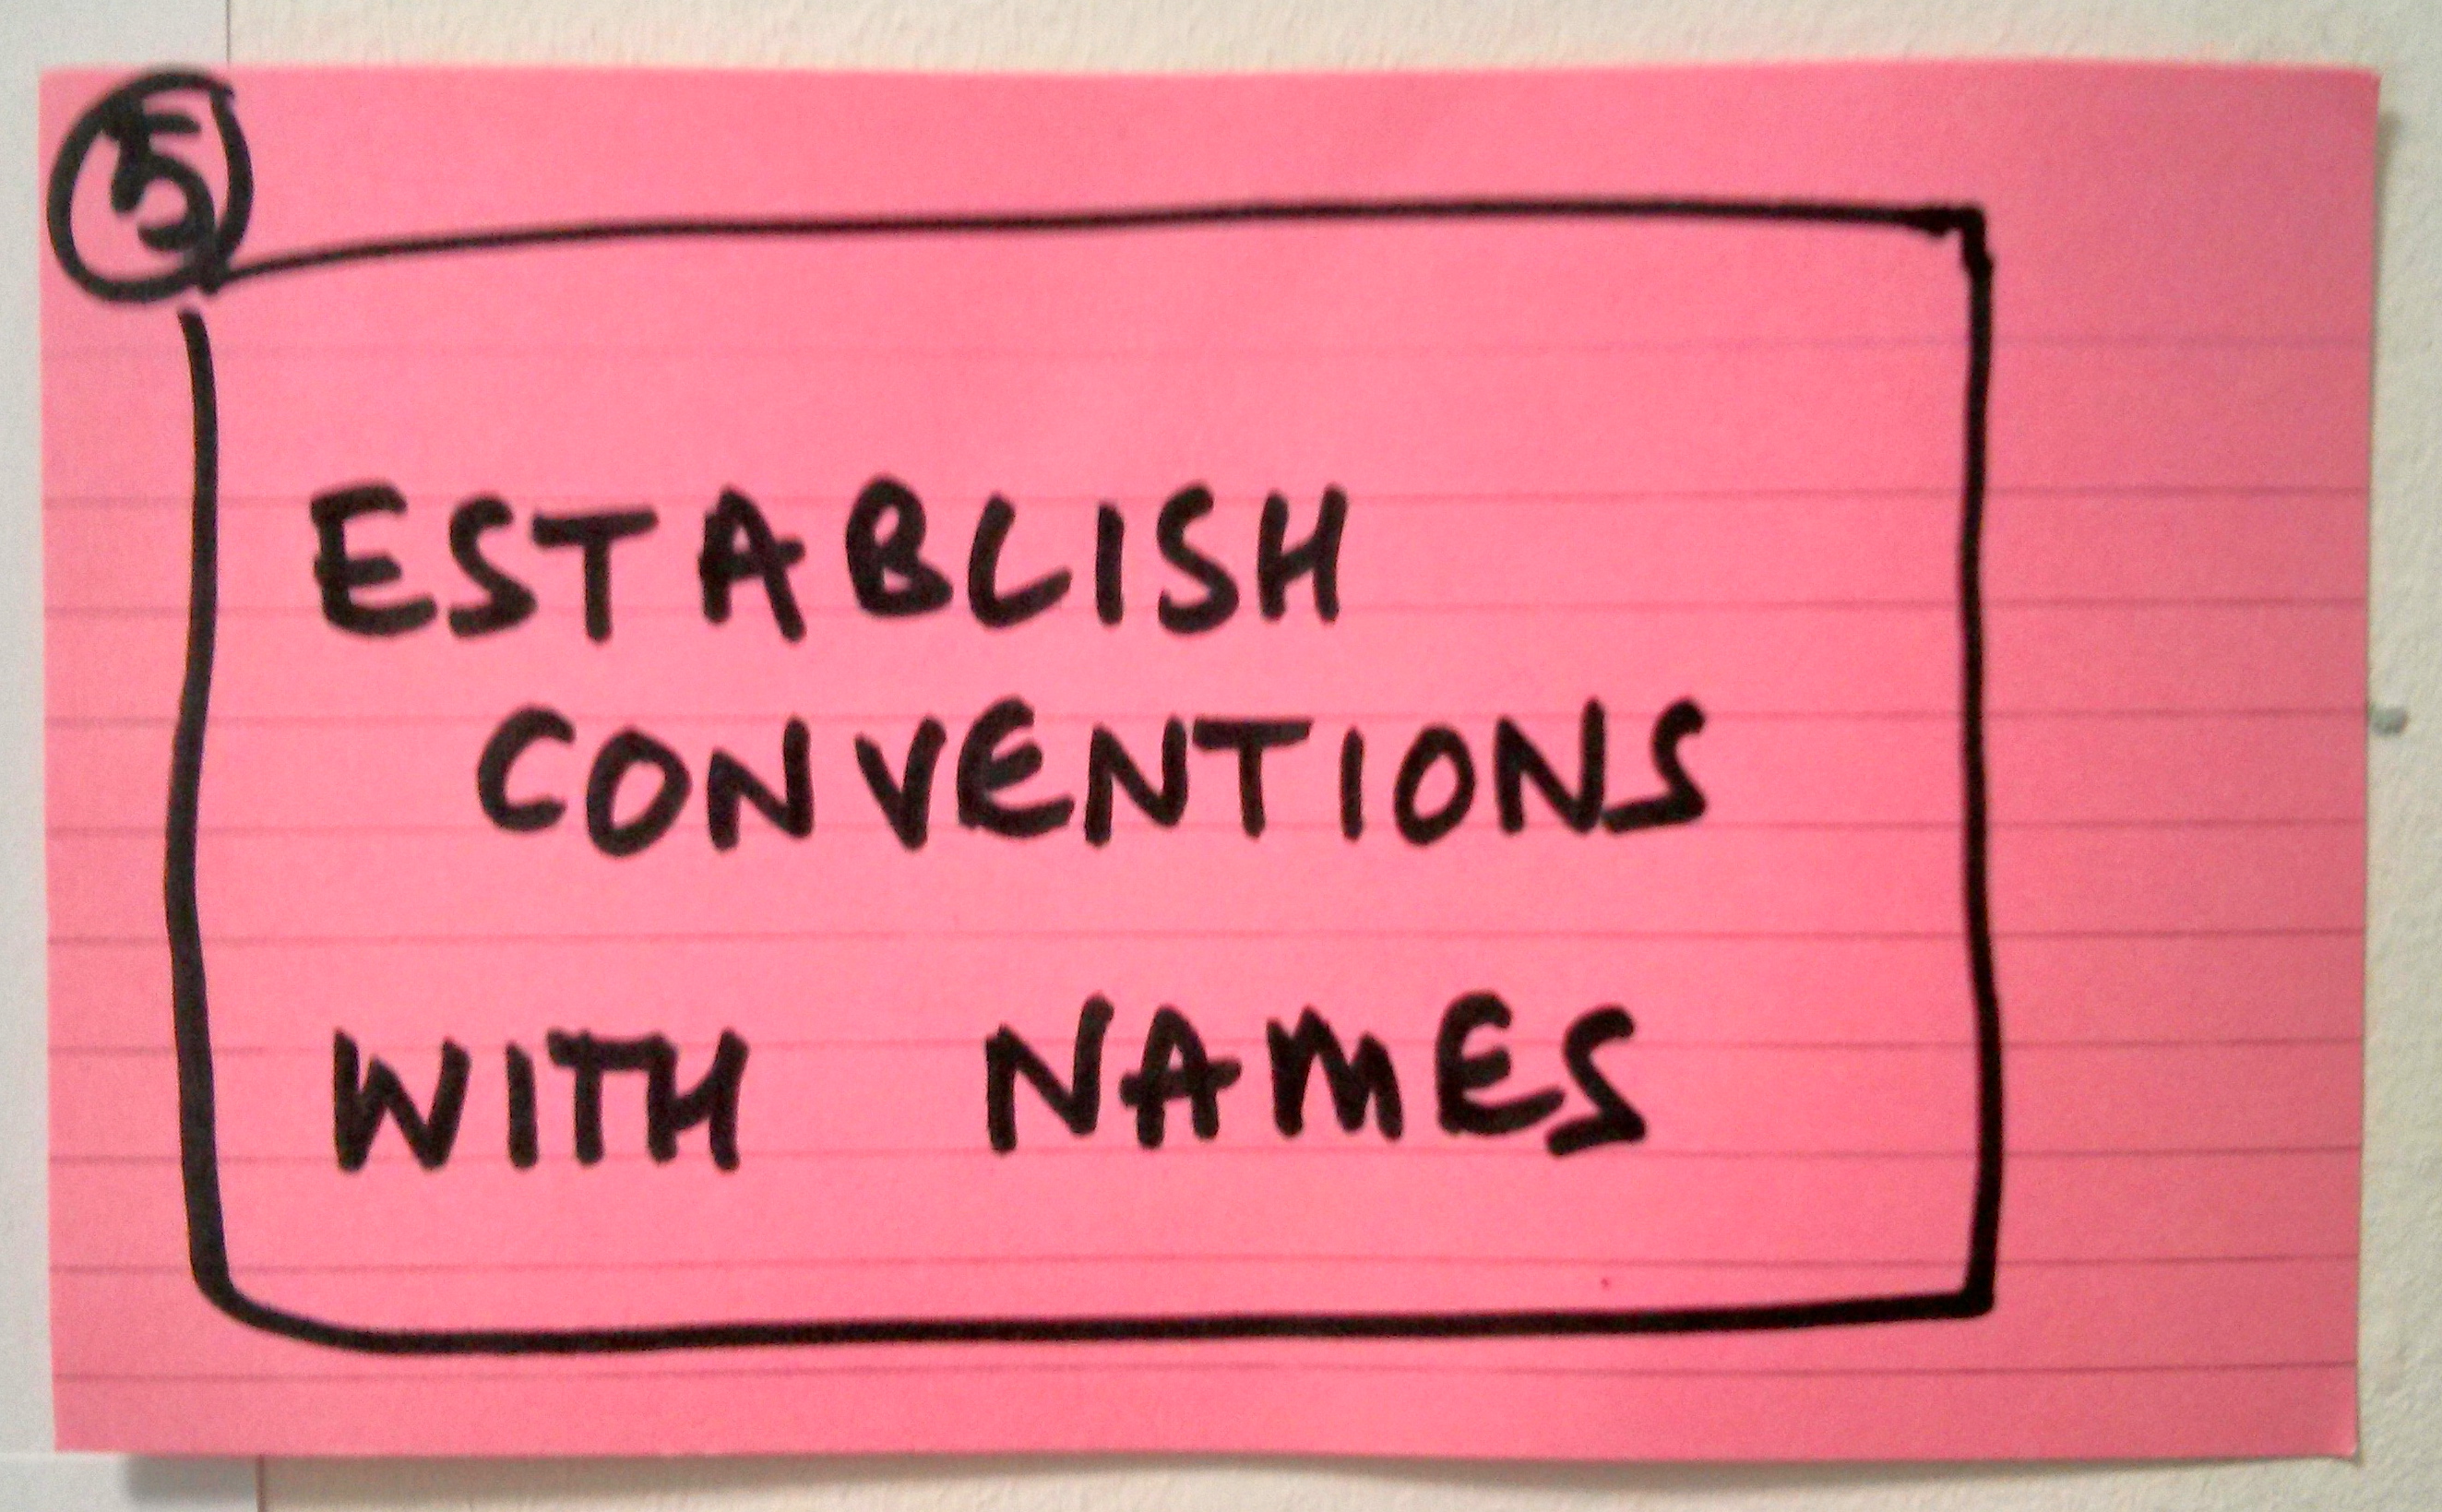 5
ESTABLISH
CONVENTIONS
WITH NAMES